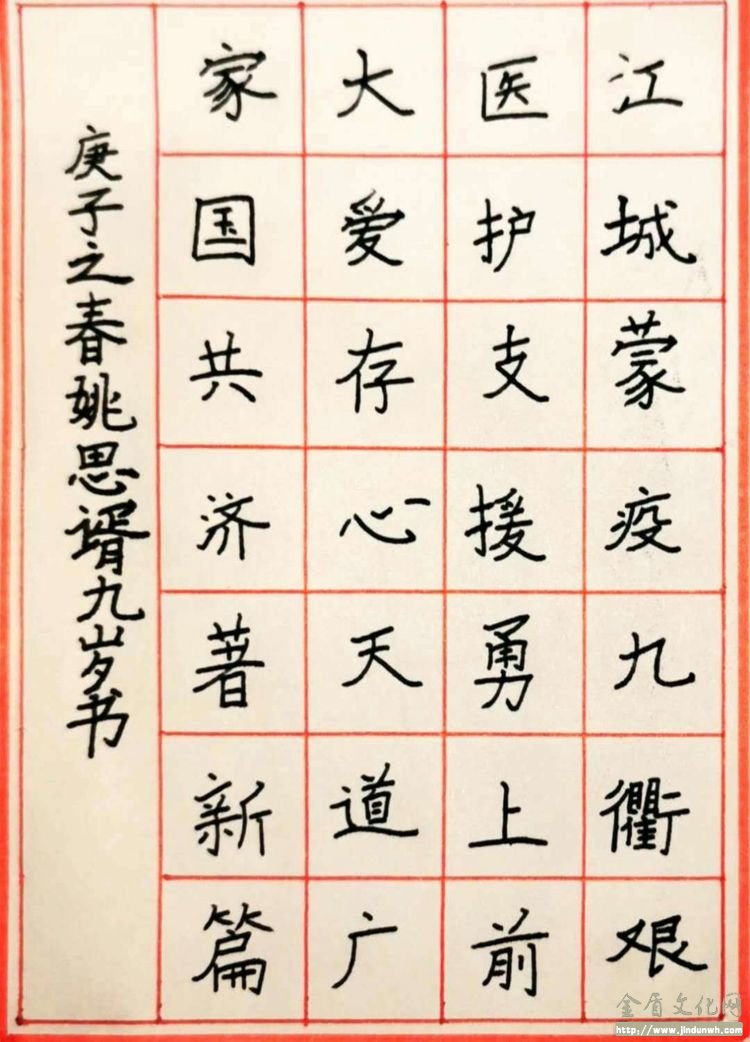 江城蒙疫九衢艰
医护支援勇上前
大爱存心天道广
家国共济著新篇
庚子之春姚思谞九岁书
金盾文化网
http://www.jindunwh.com